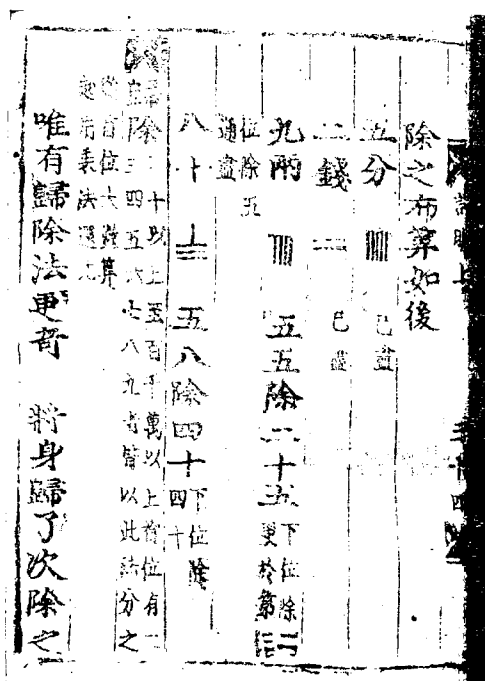 除之布算如後
五分 已盡
二錢 已盡
九兩 五五除二十五 下位除二
更於第三
位除五
通盡
八十 五八除四十 下位除
四十
除 二十以上至百千萬以上首位有一
三四五六七八九者皆以此法分之
從首位大數算
起用乘法還元
唯有歸除法更奇 將身歸了次除之